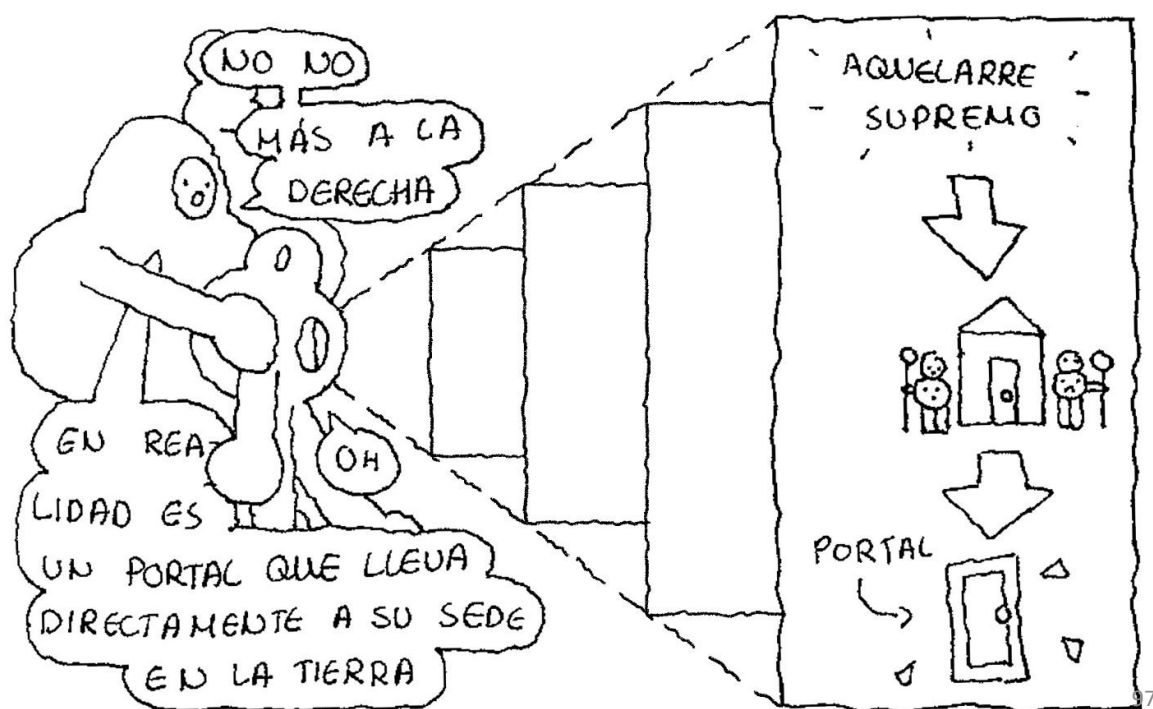 NO NO
MÁS A LA
DERECHA
EN REA-
LIDAD ES
UN PORTAL QUE LLEVA
DIRECTAMENTE A SU SEDE
EN LA TIERRA
OH
AQUELARRE
SUPREMO
PORTAL
97